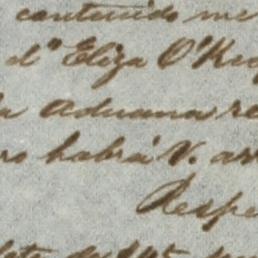 contenido me
dª Eliza O'Ke
la Aduana re
ro habrá V. arr
Respe